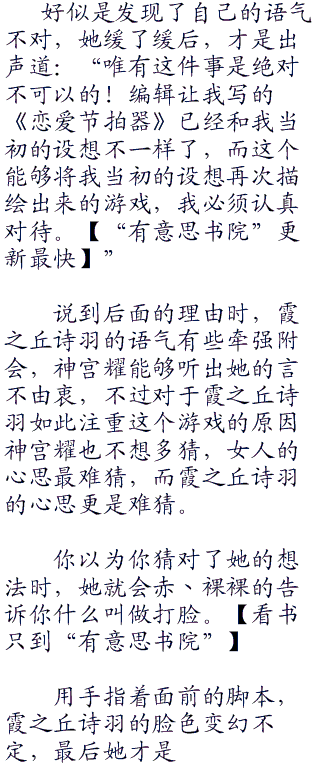 好似是发现了自己的语气
不对，她缓了缓后，才是出
声道：“唯有这件事是绝对
不可以的！编辑让我写的
《恋爱节拍器》已经和我当
初的设想不一样了，而这个
能够将我当初的设想再次描
绘出来的游戏，我必须认真
对待。【“有意思书院”更
新最快】”
说到后面的理由时，霞
之丘诗羽的语气有些牵强附
会，神宫耀能够听出她的言
不由衷，不过对于霞之丘诗
羽如此注重这个游戏的原因
神宫耀也不想多猜，女人的
心思最难猜，而霞之丘诗羽
的心思更是难猜。
你以为你猜对了她的想
法时，她就会赤、裸裸的告
诉你什么叫做打脸。【看书
只到“有意思书院”】
用手指着面前的脚本，
霞之丘诗羽的脸色变幻不
定，最后她才是